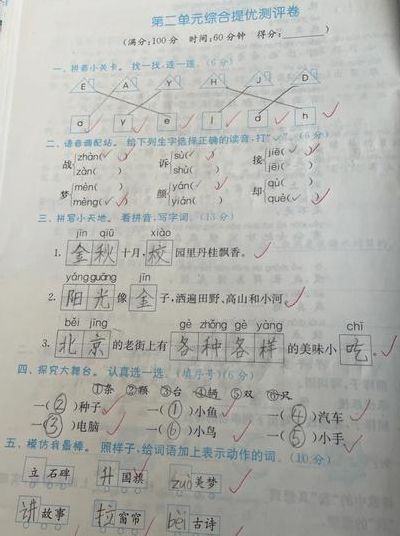 第二单元综合提优测评卷
(满分:100分 时间:60分钟 得分:________)
一、拼音小关卡。找一找,连一连。(6分)
E A Y H J D
a y e j d h
二、语音调配站。给下列生字选择正确的读音,打“✓”。(6分)
战 zhàn(✓) zàn( ) 诉 sù(✓) shù( ) 接 jiē(✓) jēi( )
梦 mèn( ) mèng(✓) 颜 yán(✓) yián( ) 却 qù( ) què(✓)
三、拼写小天地。看拼音,写字词。(13分)
jīn qiū xiào
1. 金秋十月,校园里丹桂飘香。
yáng guāng jīn
2. 阳光像金子,洒遍田野、高山和小河。
běi jīng gè zhǒng gè yàng chī
3. 北京的老街上有各种各样的美味小吃。
四、探究大舞台。认真选一选。(填序号)(6分)
①条 ②颗 ③台 ④辆 ⑤双 ⑥只
一(②)种子 一(①)小鱼 一(④)汽车
一(③)电脑 一(⑥)小鸟 一(⑤)小手
五、模仿我最棒。照样子,给词语加上表示动作的词。(10分)
立石碑 升国旗 zuò美梦
讲故事 拉窗帘 bèi古诗